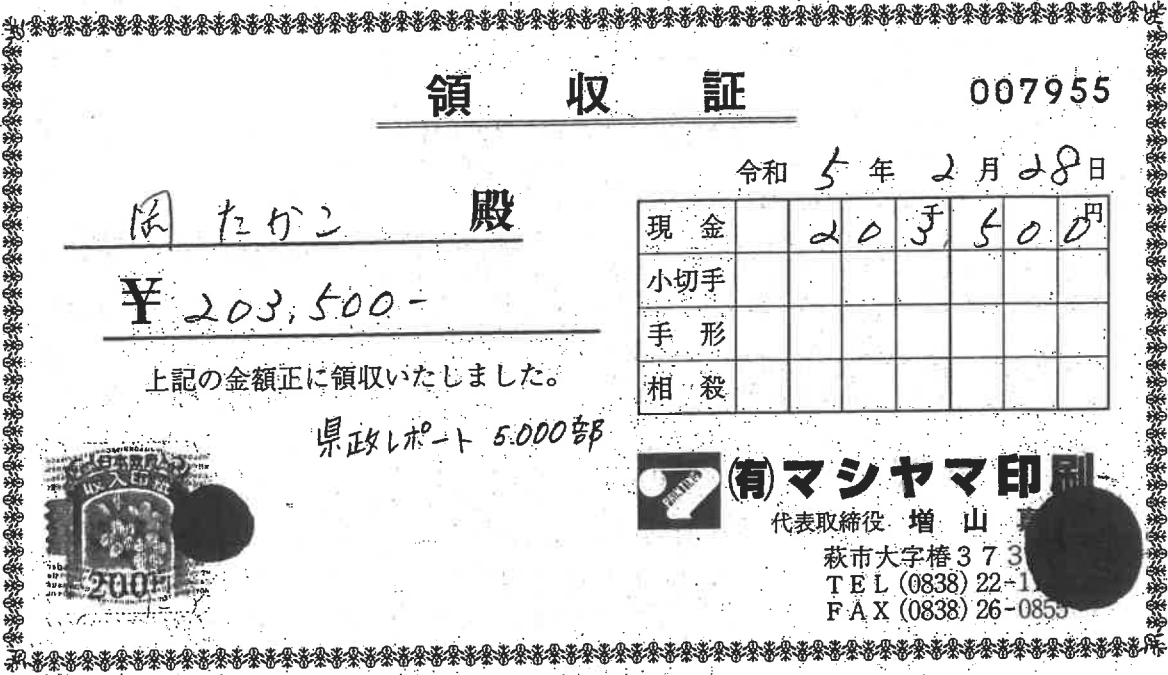 領収証
007955
令和 5年 2月28日
岡 たかこ 殿
¥ 203,500-
上記の金額正に領収いたしました。
県政レポート 5.000部
現金 203,500
千
円
小切手
手形
相殺
収入印紙
200円
(有)マシヤマ印刷
代表取締役 増山
萩市大字椿373
TEL(0838)22-1
FAX(0838)26-0855